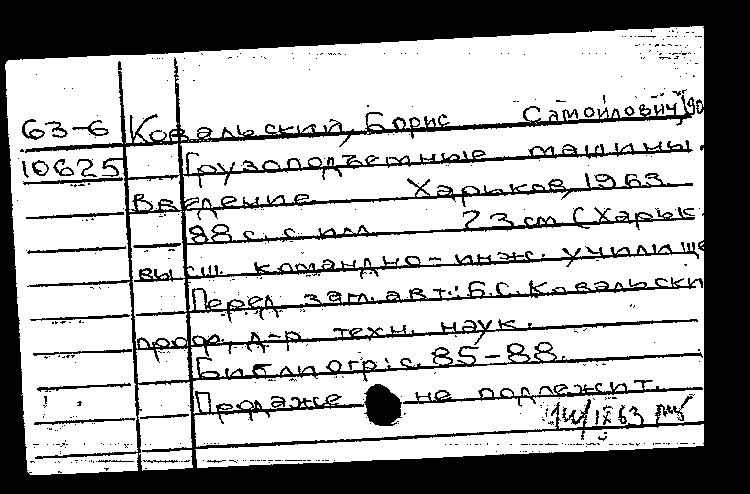 63-6 Ковальский, Борис Самойлович
10625 Грузоподъемные машины.
Введение. Харьков, 1963.
88 с. с илл. 23 см (Харьк.
высш. командно-инж. училище
Перед загл. авт.: Б.С. Ковальски
проф., д-р техн. наук.
Библиогр: с. 85-88.
Продаже не подлежит.